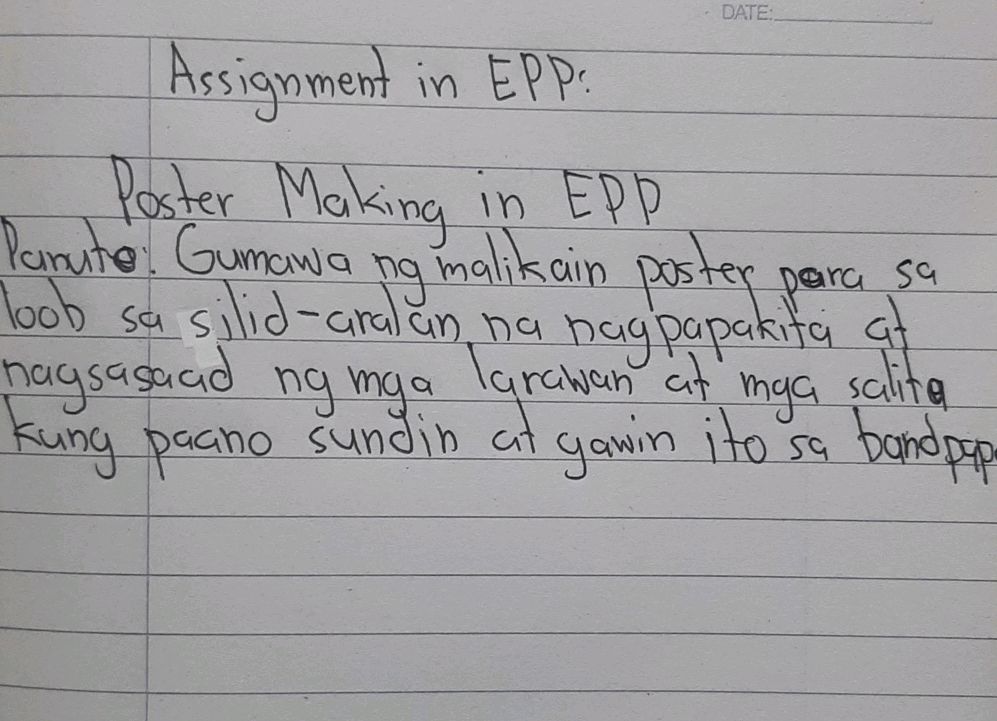 DATE:
Assignment in EPP:
Poster Making in EPP
Panuto: Gumawa ng malikain poster para sa
loob sa silid-aralan na nagpapakita at
nagsasaad ng mga larawan at mga salita
kung paano sundin at gawin ito sa bandpap